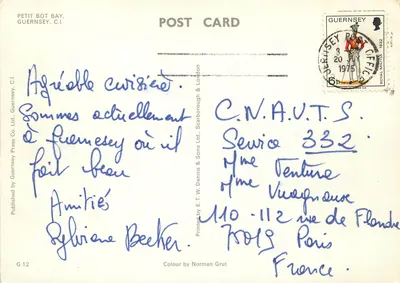 PETIT BOT BAY,
GUERNSEY, C.I.
POST CARD
GUERNSEY
GUERNSEY POST OFFICE
20
1975
Agréable croisière.
Sommes actuellement
à Guernesey où il
fait beau
Amitiés
Sylviane Becker.
C.N.A.V.T.S.
Service 332
Mme Ventura
Mme
110-112 rue de Flandre
75019 Paris
France.
Published by Guernsey Press Co. Ltd., Guernsey, C.I.
Printed by E. T. W. Dennis & Sons Ltd., Scarborough & London
G.12
Colour by Norman Grut